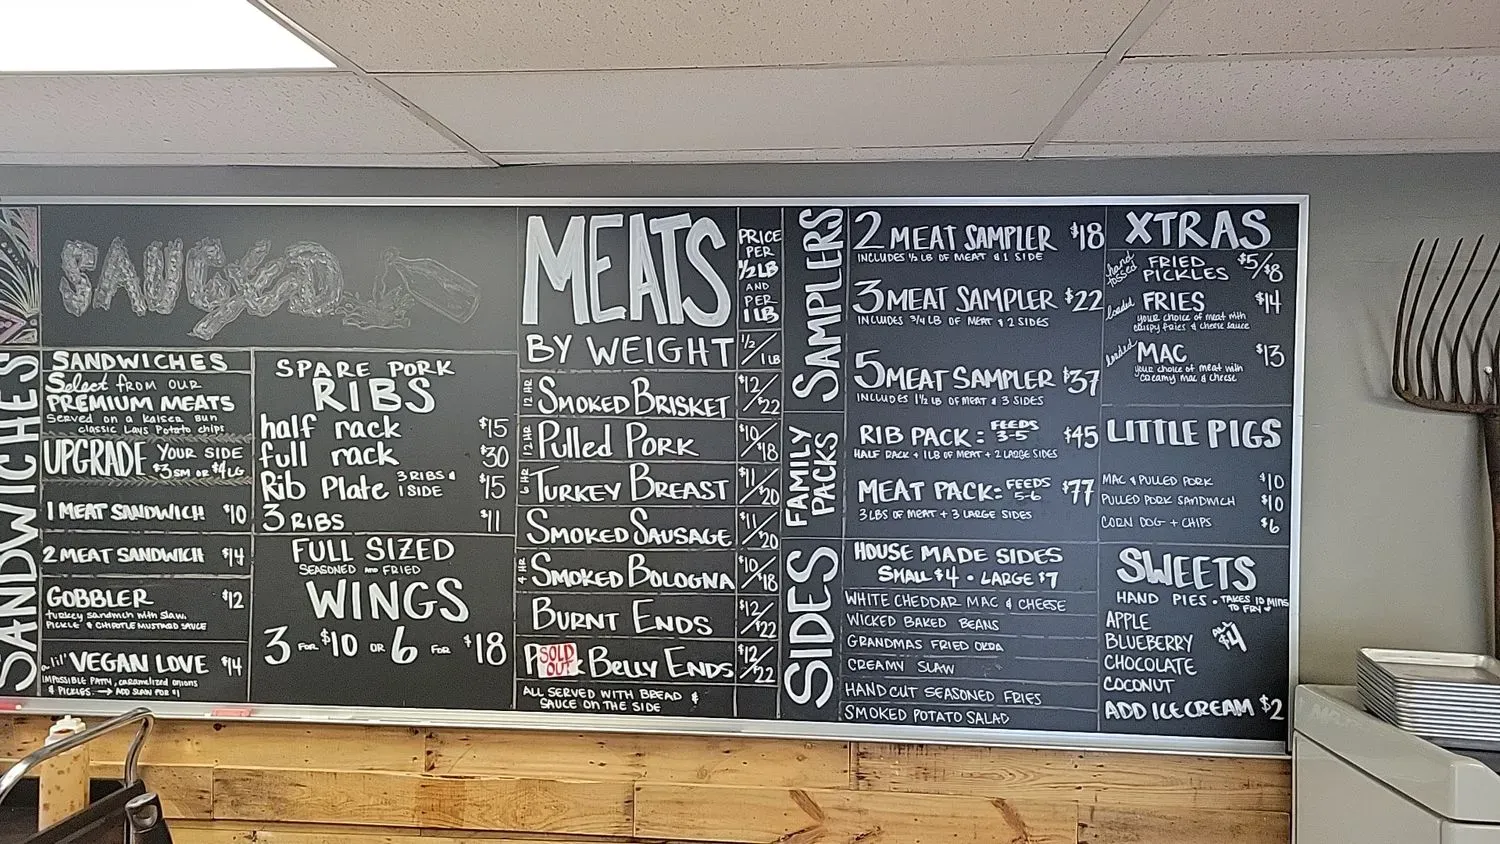 SAUCED
SANDWICHES
SANDWICHES
Select from our
PREMIUM MEATS
Served on a Kaiser Bun
classic Lays Potato chips
UPGRADE YOUR SIDE
$3 SM OR $4 LG
1 MEAT SANDWICH $10
2 MEAT SANDWICH $14
GOBBLER $12
turkey sandwich with slaw,
PICKLE & CHIPOTLE MUSTARD SAUCE
a lil' VEGAN LOVE $14
IMPOSSIBLE PATTY, caramelized onions
& PICKLES. → ADD SLAW FOR $1
SPARE PORK
RIBS
half rack $15
full rack $30
Rib Plate 3 RIBS & 1 SIDE $15
3 RIBS $11
FULL SIZED
SEASONED AND FRIED
WINGS
3 FOR $10 OR 6 FOR $18
MEATS
BY WEIGHT
PRICE
PER
1/2 LB
AND
PER
1 LB
1/2 / 1 LB
12 HR SMOKED BRISKET $12/22
12 HR PULLED PORK $10/$18
6 HR TURKEY BREAST $11/20
SMOKED SAUSAGE $11/20
4 HR SMOKED BOLOGNA $10/$18
BURNT ENDS $12/22
SOLD
OUT
P K BELLY ENDS $12/22
ALL SERVED WITH BREAD &
SAUCE ON THE SIDE
SAMPLERS
2 MEAT SAMPLER $18
INCLUDES 1/2 LB OF MEAT & 1 SIDE
3 MEAT SAMPLER $22
INCLUDES 3/4 LB OF MEAT & 2 SIDES
5 MEAT SAMPLER $37
INCLUDES 1 1/2 LB OF MEAT & 3 SIDES
FAMILY
PACKS
RIB PACK: FEEDS 3-5 $45
HALF RACK + 1LB OF MEAT + 2 LARGE SIDES
MEAT PACK: FEEDS 5-6 $77
3 LBS OF MEAT + 3 LARGE SIDES
SIDES
HOUSE MADE SIDES
SMALL $4 • LARGE $7
WHITE CHEDDAR MAC & CHEESE
WICKED BAKED BEANS
GRANDMAS FRIED OKRA
CREAMY SLAW
HANDCUT SEASONED FRIES
SMOKED POTATO SALAD
XTRAS
hand tossed FRIED PICKLES $5/$8
loaded FRIES $14
your choice of meat with
crispy fries & cheese sauce
loaded MAC $13
your choice of meat with
creamy mac & cheese
LITTLE PIGS
MAC & PULLED PORK $10
PULLED PORK SANDWICH $10
CORN DOG + CHIPS $6
SWEETS
HAND PIES • TAKES 10 MINS
TO FRY
APPLE
BLUEBERRY
CHOCOLATE
COCONUT
ALL $4
ADD ICE CREAM $2